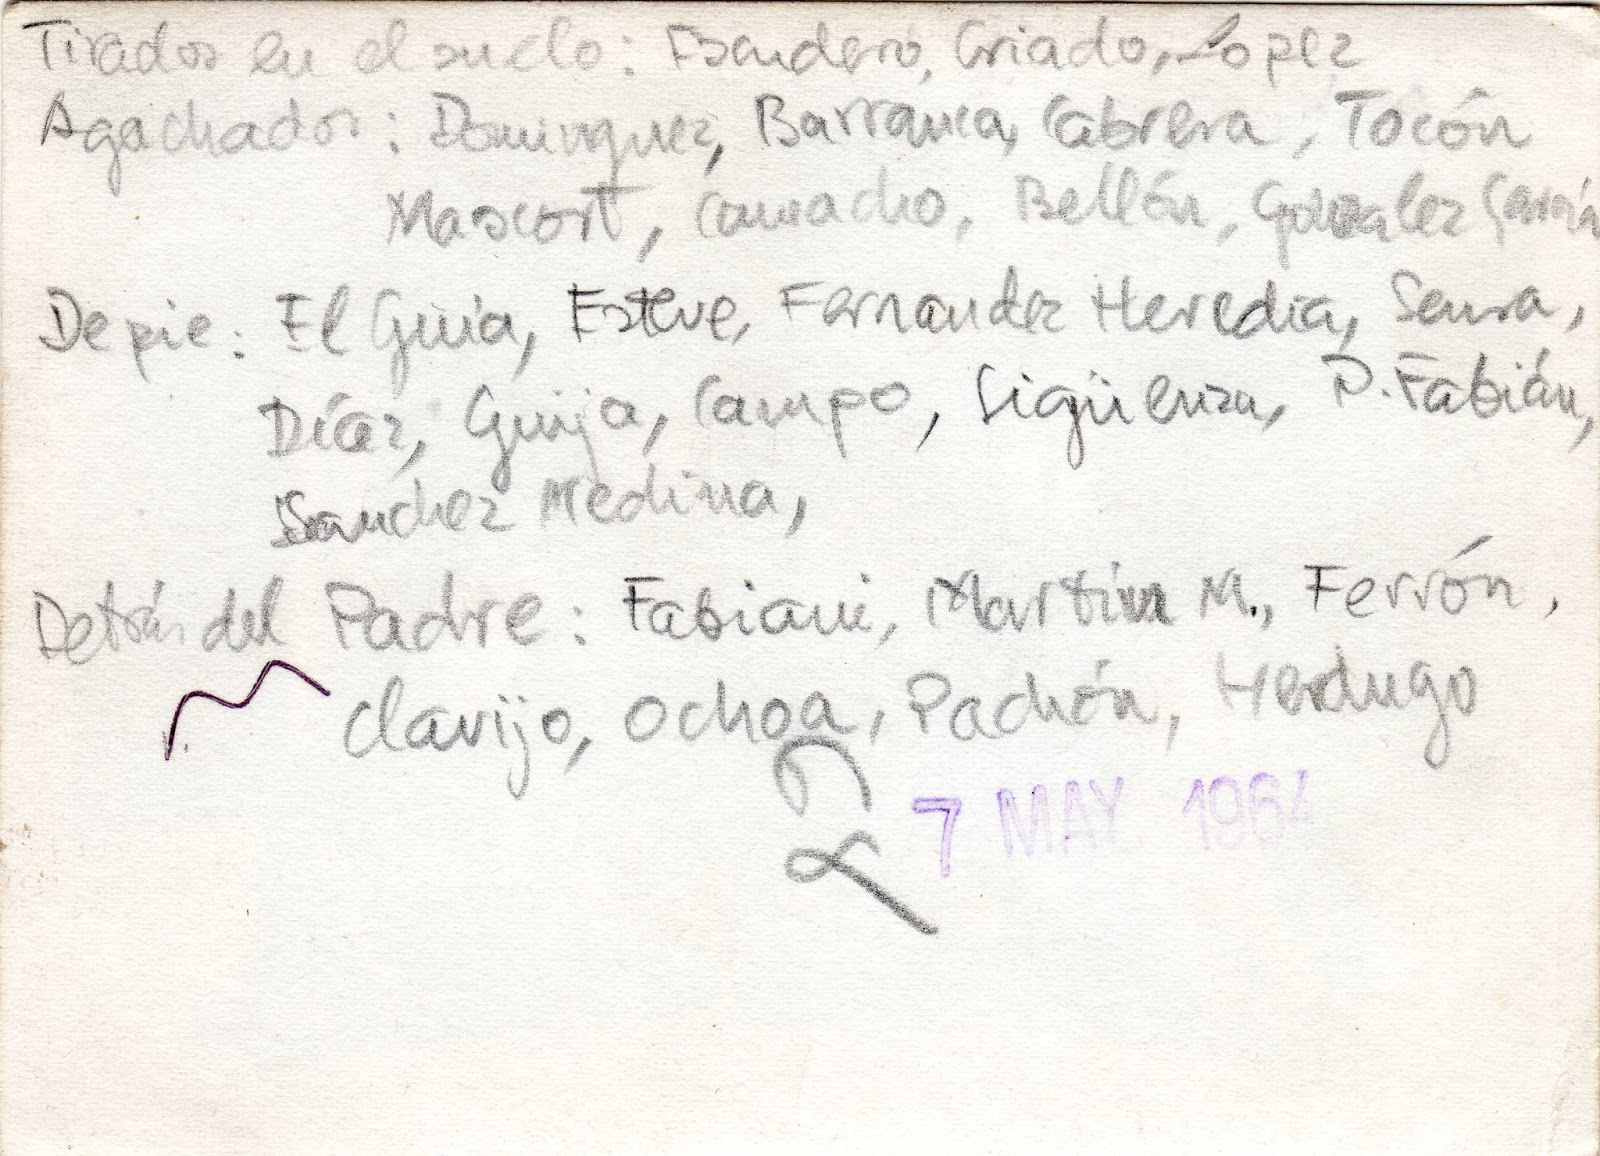 Tirados en el suelo: Escudero, Criado, Lopez
Agachados: Dominguez, Barranca, Cabrera, Tocón
Mascort, Camacho, Bellón, Gonzalez García
De pie: El Guía, Esteve, Fernandez Heredia, Senra,
Díaz, Guija, Campo, Sigüenza, P. Fabián,
Sanchez Medina,
Detrás del Padre: Fabiani, Martín M., Ferrón,
Clavijo, Ochoa, Pachón, Herdugo
7 MAY 1964